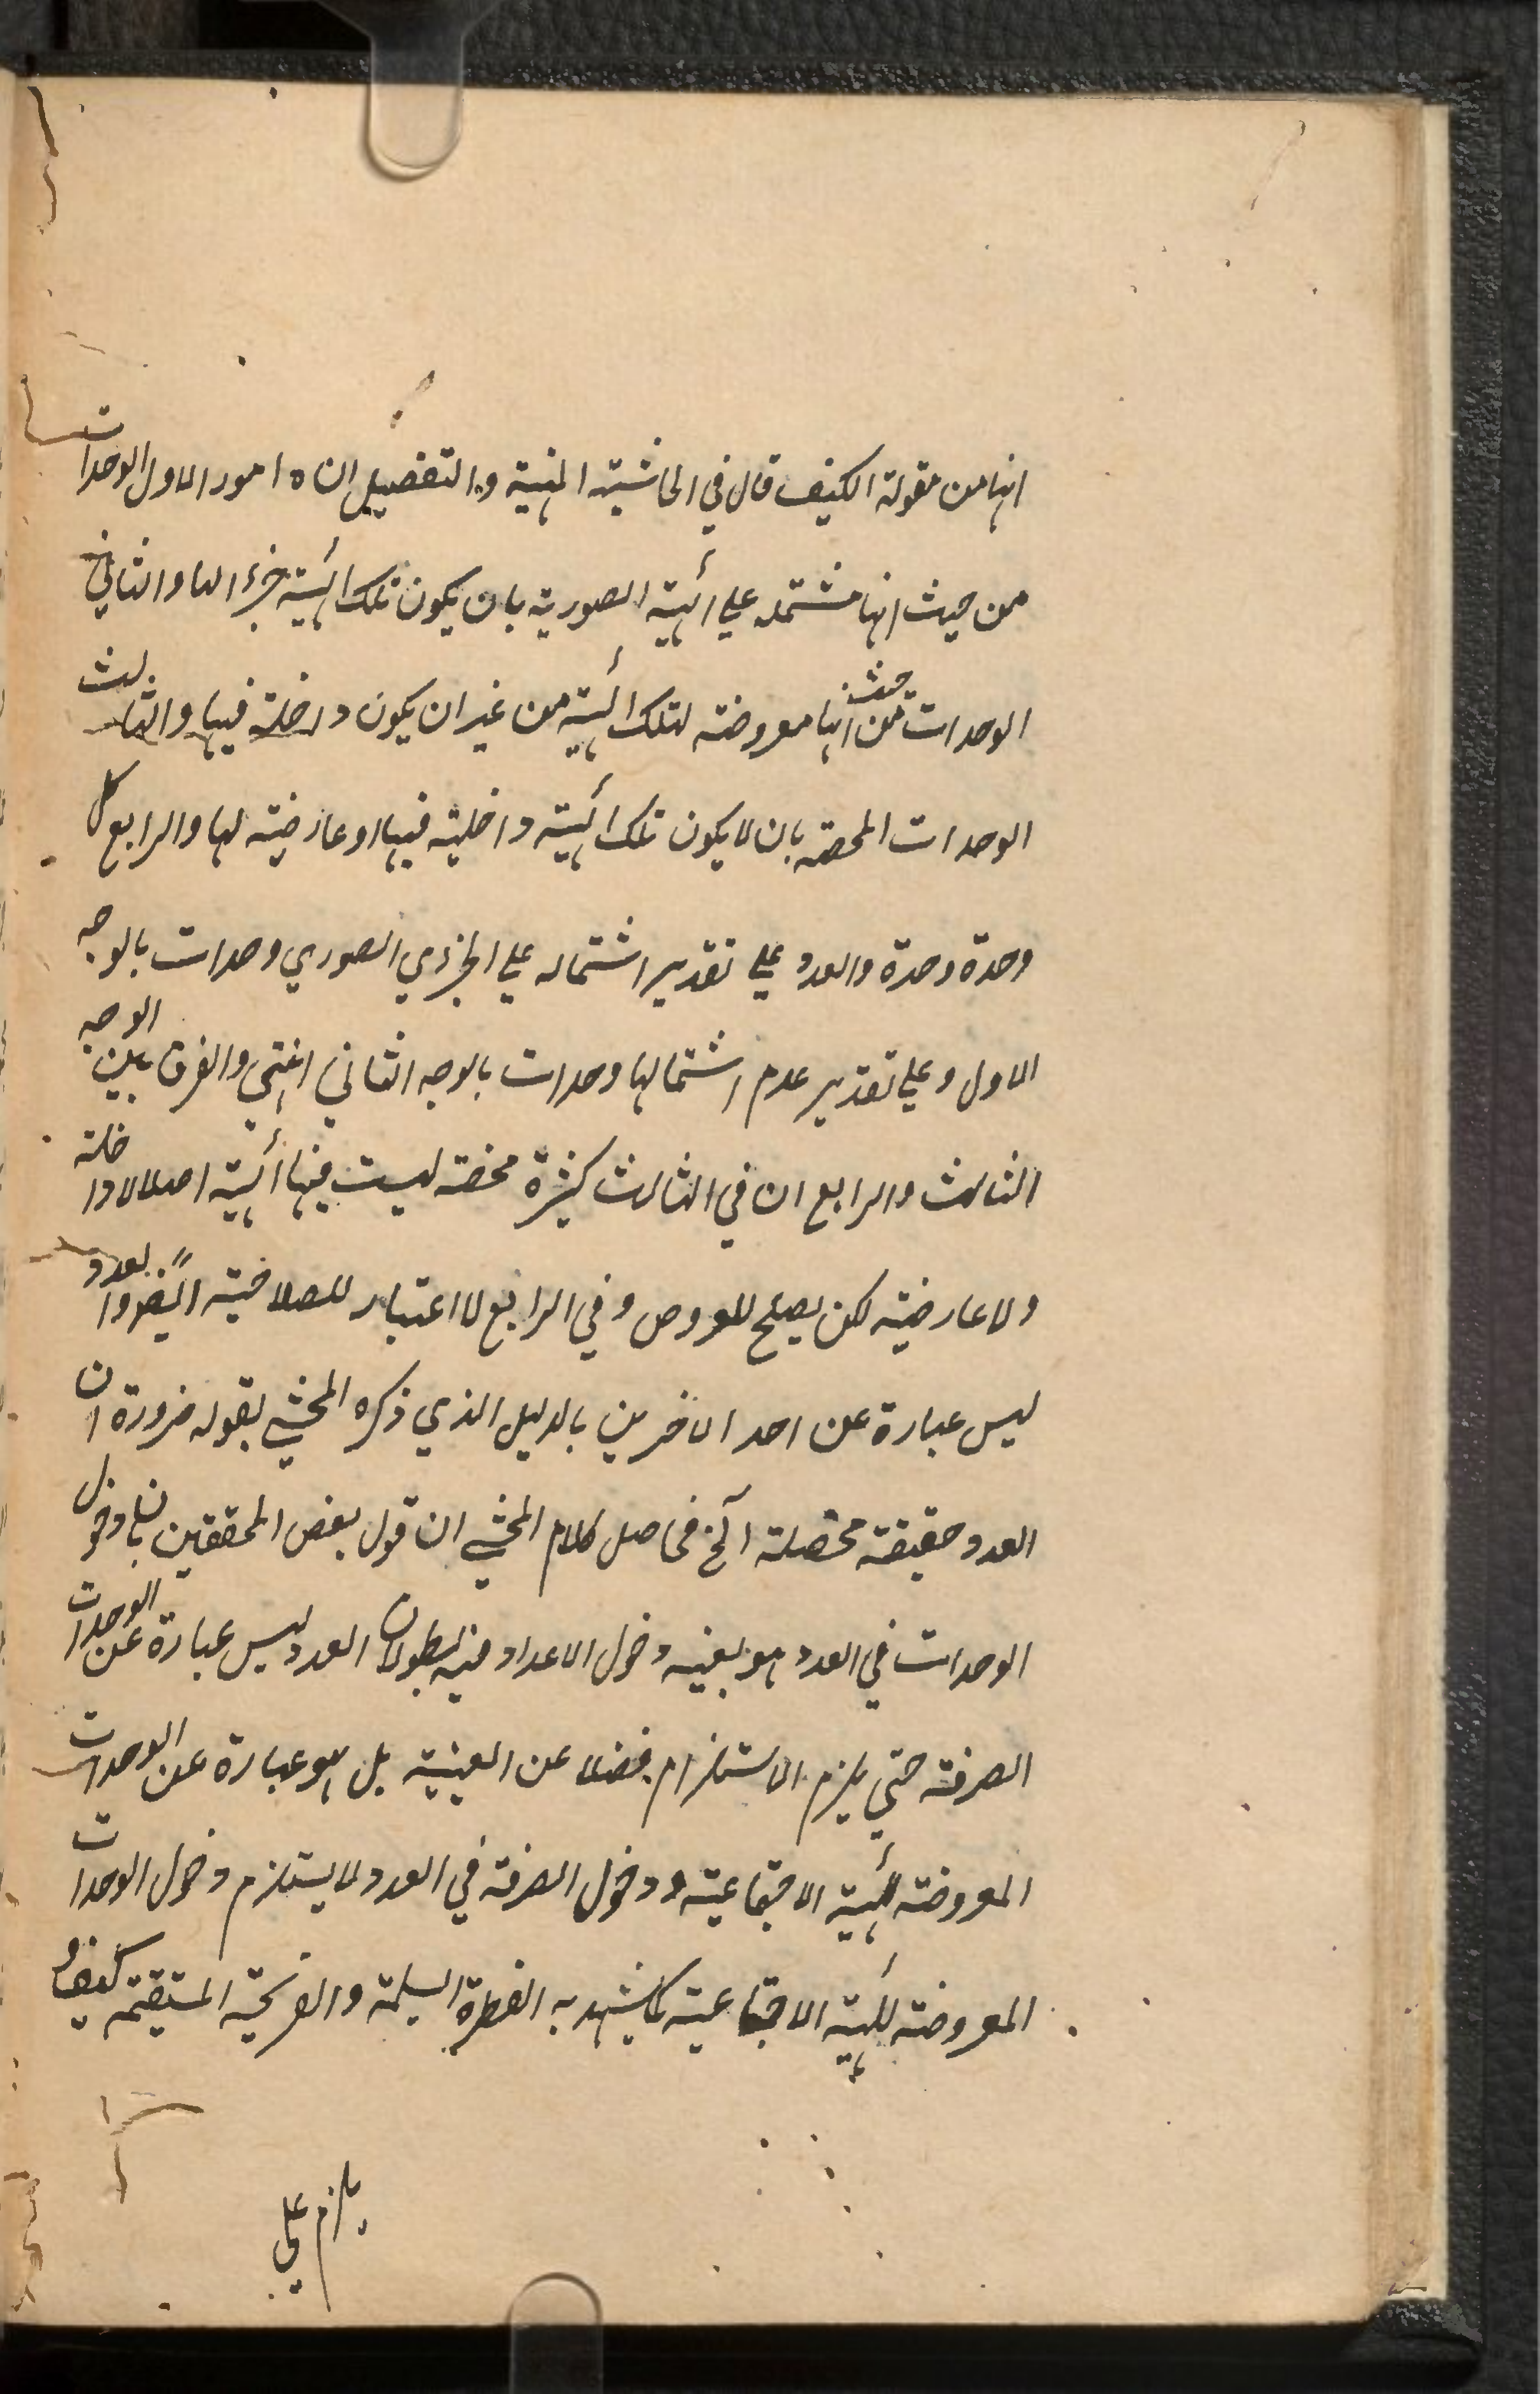 انها من مقولة الكيف قال في الحاشية المنهية والتفصيل ان ه امور الاول الوحدات
من حيث انها مشتملة علي الهيئة الصورية بان يكون تلك الهيئة جزء الها والثاني
الوحدات من حيث انها معروضة لتلك الهيئة من غير ان يكون داخلة فيها والثالث
الوحدات المحضة بان لا يكون تلك الهيئة داخلية فيها او عارضية لها والرابع كل
وحدة وحدة والعدد علي تقدير اشتماله علي الجزءي الصوري وحدات بالوجه
الاول و علي تقدير عدم اشتمالها وحدات بالوجه الثاني انتهي والفرق بين الوجه
الثالث والرابع ان في الثالث كثرة محضة ليست فيها الهيئة اصلا لا داخلة
ولا عارضية لكن يصلح للعروض وفي الرابع لا اعتبار للصلاحية ايضا والعدد
ليس عبارة عن احد الاخرين بالدليل الذي ذكره المحشي بقوله ضرورة ان
العدد حقيقة محصلة آلخ فحاصل كلام المحشي ان قول بعض المحققين بان دخول
الوحدات في العدد هو بعينه دخول الاعداد فيه بطلان العدد ليس عبارة عن الوحدات
الصرفة حتي يلزم الاستلزام فضلا عن العينية بل هو عبارة عن الوحدات
المعروضة للهيئة الاجتماعية ودخول الصرفة في العدد لا يستلزم دخول الوحدات
المعروضة للهيئة الاجتماعية كما يشهد به الفطرة السليمة والقريحة المستقيمة كيف و
يلزم علي